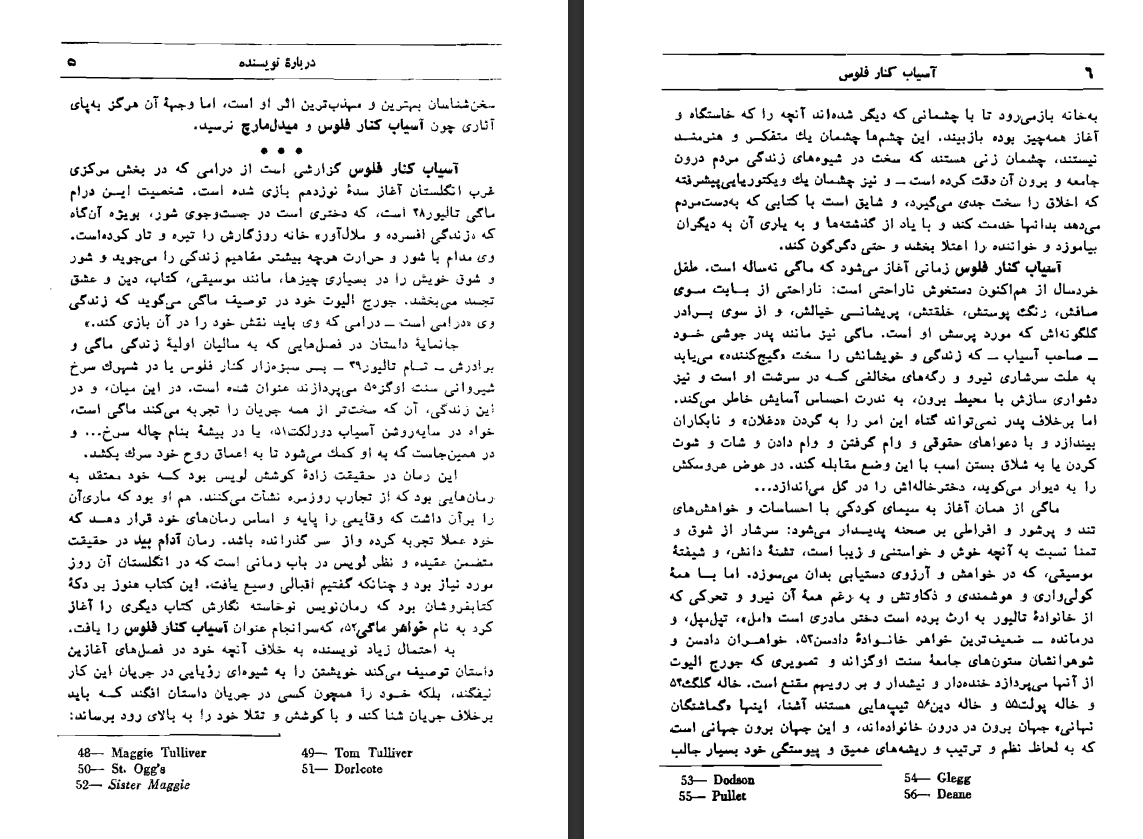 دربارهٔ نویسنده
۵
سخن‌شناسان بهترین و مهذب‌ترین اثر او است، اما وجههٔ آن هرگز به‌پای
آثاری چون آسیاب کنار فلوس و میدل‌مارچ نرسید.
• • •
آسیاب کنار فلوس گزارشی است از درامی که در بخش مرکزی
غرب انگلستان آغاز سدهٔ نوزدهم بازی شده است. شخصیت ایـن درام
ماگی تالیور۴۸ است، که دختری است در جست‌وجوی شور، بویژه آن‌گاه
که «زندگی افسرده و ملال‌آور» خانه روزگارش را تیره و تار کرده‌است.
وی مدام با شور و حرارت هرچه بیشتر مفاهیم زندگی را می‌جوید و شور
و شوق خویش را در بسیاری چیزها، مانند موسیقی، کتاب، دین و عشق
تجسد می‌بخشد. جورج الیوت خود در توصیف ماگی می‌گوید که زندگی
وی «درامی است ــ درامی که وی باید نقش خود را در آن بازی کند.»
جانمایهٔ داستان در فصل‌هایی که به سالیان اولیهٔ زندگی ماگی و
برادرش ــ تـام تالیور۴۹ ــ بـر سبزه‌زار کنار فلوس یا در شهرك سرخ
شیروانی سنت اوگز۵۰ می‌پردازند عنوان شده است. در این میان، و در
این زندگی، آن که سخت‌تر از همه جریان را تجربه می‌کند ماگی است،
خواه در سایه‌روشن آسیاب دورلکت۵۱، یا در بیشهٔ بنام چاله سرخ... و
در همین‌جاست که به او کمك می‌شود تا به اعماق روح خود سرك بکشد.
این رمان در حقیقت زادهٔ کوشش لویس بود کـه خود معتقد به
رمان‌هایی بود که از تجارب روزمره نشأت می‌کنند. هم او بود که ماری‌آن
را برآن داشت که وقایعی را پایه و اساس رمان‌های خود قرار دهـد که
خود عملا تجربه کرده واز سر گذرانده باشد. رمان آدام بید در حقیقت
متضمن عقیده و نظر لویس در باب رمانی است که در انگلستان آن روز
مورد نیاز بود و چنانکه گفتیم اقبالی وسیع یافت. این کتاب هنوز بر دکهٔ
کتابفروشان بود که رمان‌نویس نوخاسته نگارش کتاب دیگری را آغاز
کرد به نام خواهر ماگی۵۲، که‌سرانجام عنوان آسیاب کنار فلوس را یافت.
به احتمال زیاد نویسنده به خلاف آنچه خود در فصل‌های آغازین
داستان توصیف می‌کند خویشتن را به شیوه‌ای رؤیایی در جریان این کار
نیفگند، بلکه خـود را همچون کسی در جریان داستان افگند کـه باید
برخلاف جریان شنا کند و با کوشش و تقلا خود را به بالای رود برساند:
48— Maggie Tulliver
49— Tom Tulliver
50— St. Ogg's
51— Dorlcote
52— Sister Maggie
۶
آسیاب کنار فلوس
به‌خانه بازمی‌رود تا با چشمانی که دیگر شده‌اند آنچه را که خاستگاه و
آغاز همه‌چیز بوده بازبیند. این چشم‌ها چشمان یك متفکـر و هنرمنـد
نیستند، چشمان زنی هستند که سخت در شیوه‌های زندگی مردم درون
جامعه و برون آن دقت کرده است ــ و نیز چشمان یك ویکتوریایی‌پیشرفته
که اخلاق را سخت جدی می‌گیرد، و شایق است با کتابی که به‌دست‌مردم
می‌دهد بدانها خدمت کند و با یاد از گذشته‌ها و به یاری آن به دیگران
بیاموزد و خواننده را اعتلا بخشد و حتی دگرگون کند.
آسیاب کنار فلوس زمانی آغاز می‌شود که ماگی نه‌ساله است. طفل
خردسال از هم‌اکنون دستخوش ناراحتی است: ناراحتی از بـابت مـوی
صافش، رنگ پوستش، خلقتش، پریشانـی خیالش، و از سوی بـرادر
گلگونه‌اش که مورد پرسش او است. ماگی نیز مانند پدر جوشی خـود
ــ صاحب آسیاب ــ که زندگی و خویشانش را سخت «گیج‌کننده» می‌یابد
به علت سرشاری نیرو و رگه‌های مخالفی کـه در سرشت او است و نیز
دشواری سازش با محیط برون، به ندرت احساس آسایش خاطر می‌کند.
اما برخلاف پدر نمی‌تواند گناه این امر را به گردن «دغلان» و نابکاران
بیندازد و با دعواهای حقوقی و وام گرفتن و وام دادن و شات و شوت
کردن یا به شلاق بستن اسب با این وضع مقابله کند. در عوض عروسکش
را به دیوار می‌کوبد، دخترخاله‌اش را در گل می‌اندازد...
ماگی از همان آغاز به سیمای کودکی با احساسات و خواهش‌های
تند و پرشور و افراطی بر صحنه پدیـدار می‌شود: سرشار از شوق و
تمنا نسبت به آنچه خوش و خواستنی و زیبا است، تشنهٔ دانش، و شیفتهٔ
موسیقی، که در خواهش و آرزوی دستیابی بدان می‌سوزد. اما بـا همهٔ
کولی‌واری و هوشمندی و ذکاوتش و به رغم همهٔ آن نیرو و تحرکی که
از خانوادهٔ تالیور به ارث برده است دختر مادری است «امل»، تپل‌مپل، و
درمانده ــ ضعیف‌ترین خواهر خانـوادهٔ دادسن۵۳. خواهـران دادسن و
شوهرانشان ستون‌های جامعهٔ سنت اوگزاند و تصویری که جورج الیوت
از آنها می‌پردازد خنده‌دار و نیشدار و بر رویهم مقنع است. خاله گلگ۵۴
و خاله پولت۵۵ و خاله دین۵۶ تیپ‌هایی هستند آشنا، اینها «گماشتگان
نهانی» جهان برون در درون خانواده‌اند، و این جهان برون جهانی است
که به لحاظ نظم و ترتیب و ریشه‌های عمیق و پیوستگی خود بسیار جالب
53— Dodson
54— Glegg
55— Pullet
56— Deane